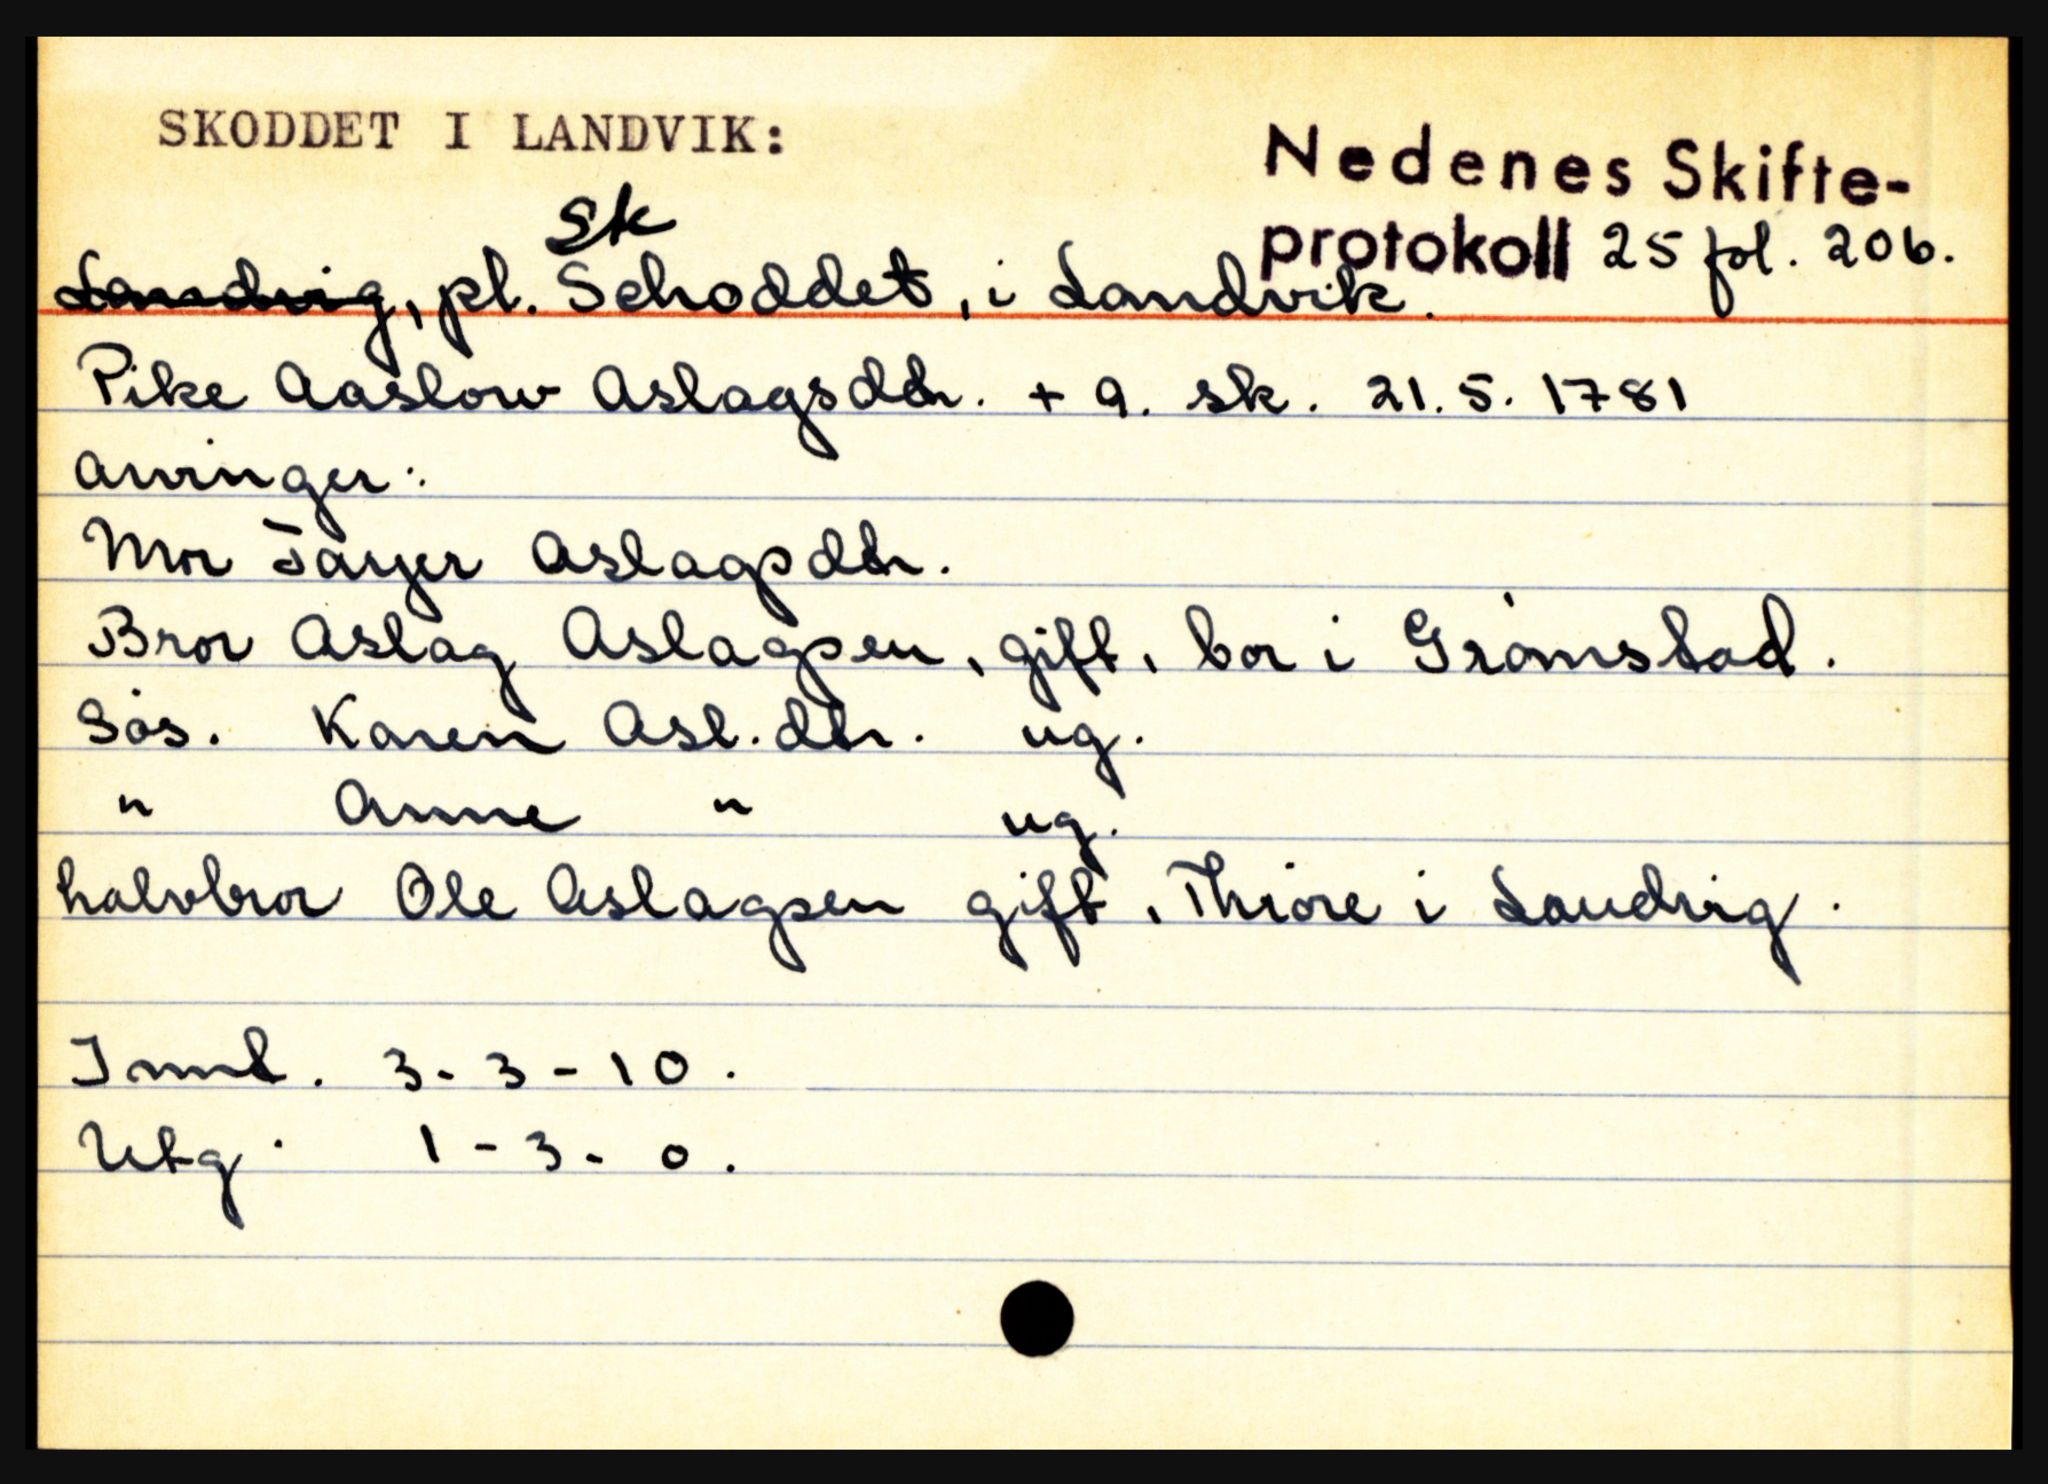 SKODDET I LANDVIK:
Nedenes Skifte-
protokoll 25 fol. 206.
Sk
Landvig, pl. Schoddet, i Landvik.
Pike Aaslow Aslagsdtr. + a. sk. 21.5.1781
arvinger:
Mor Tarjer Aslagsdtr.
Bror Aslag Aslagsen, gift, bor i Grømstad.
Søs. Karen Asl.dtr. ug.
" Anne " ug.
halvbror Ole Aslagsen gift, Thrøre i Landvig.
Innt. 3-3-10.
Utg. 1-3-0.